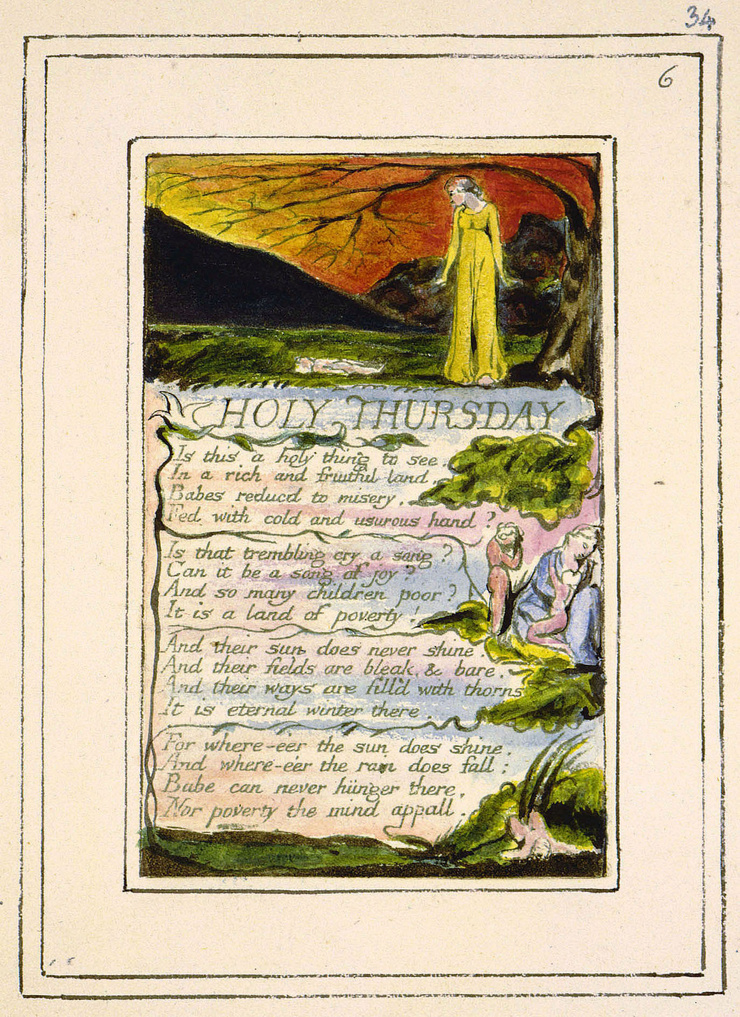 34
6
HOLY THURSDAY
Is this a holy thing to see,
In a rich and fruitful land,
Babes reducd to misery,
Fed with cold and usurous hand?
Is that trembling cry a song?
Can it be a song of joy?
And so many children poor?
It is a land of poverty!
And their sun does never shine.
And their fields are bleak & bare.
And their ways are fill'd with thorns
It is eternal winter there
For where-eer the sun does shine,
And where-e'er the rain does fall:
Babe can never hunger there,
Nor poverty the mind appall.